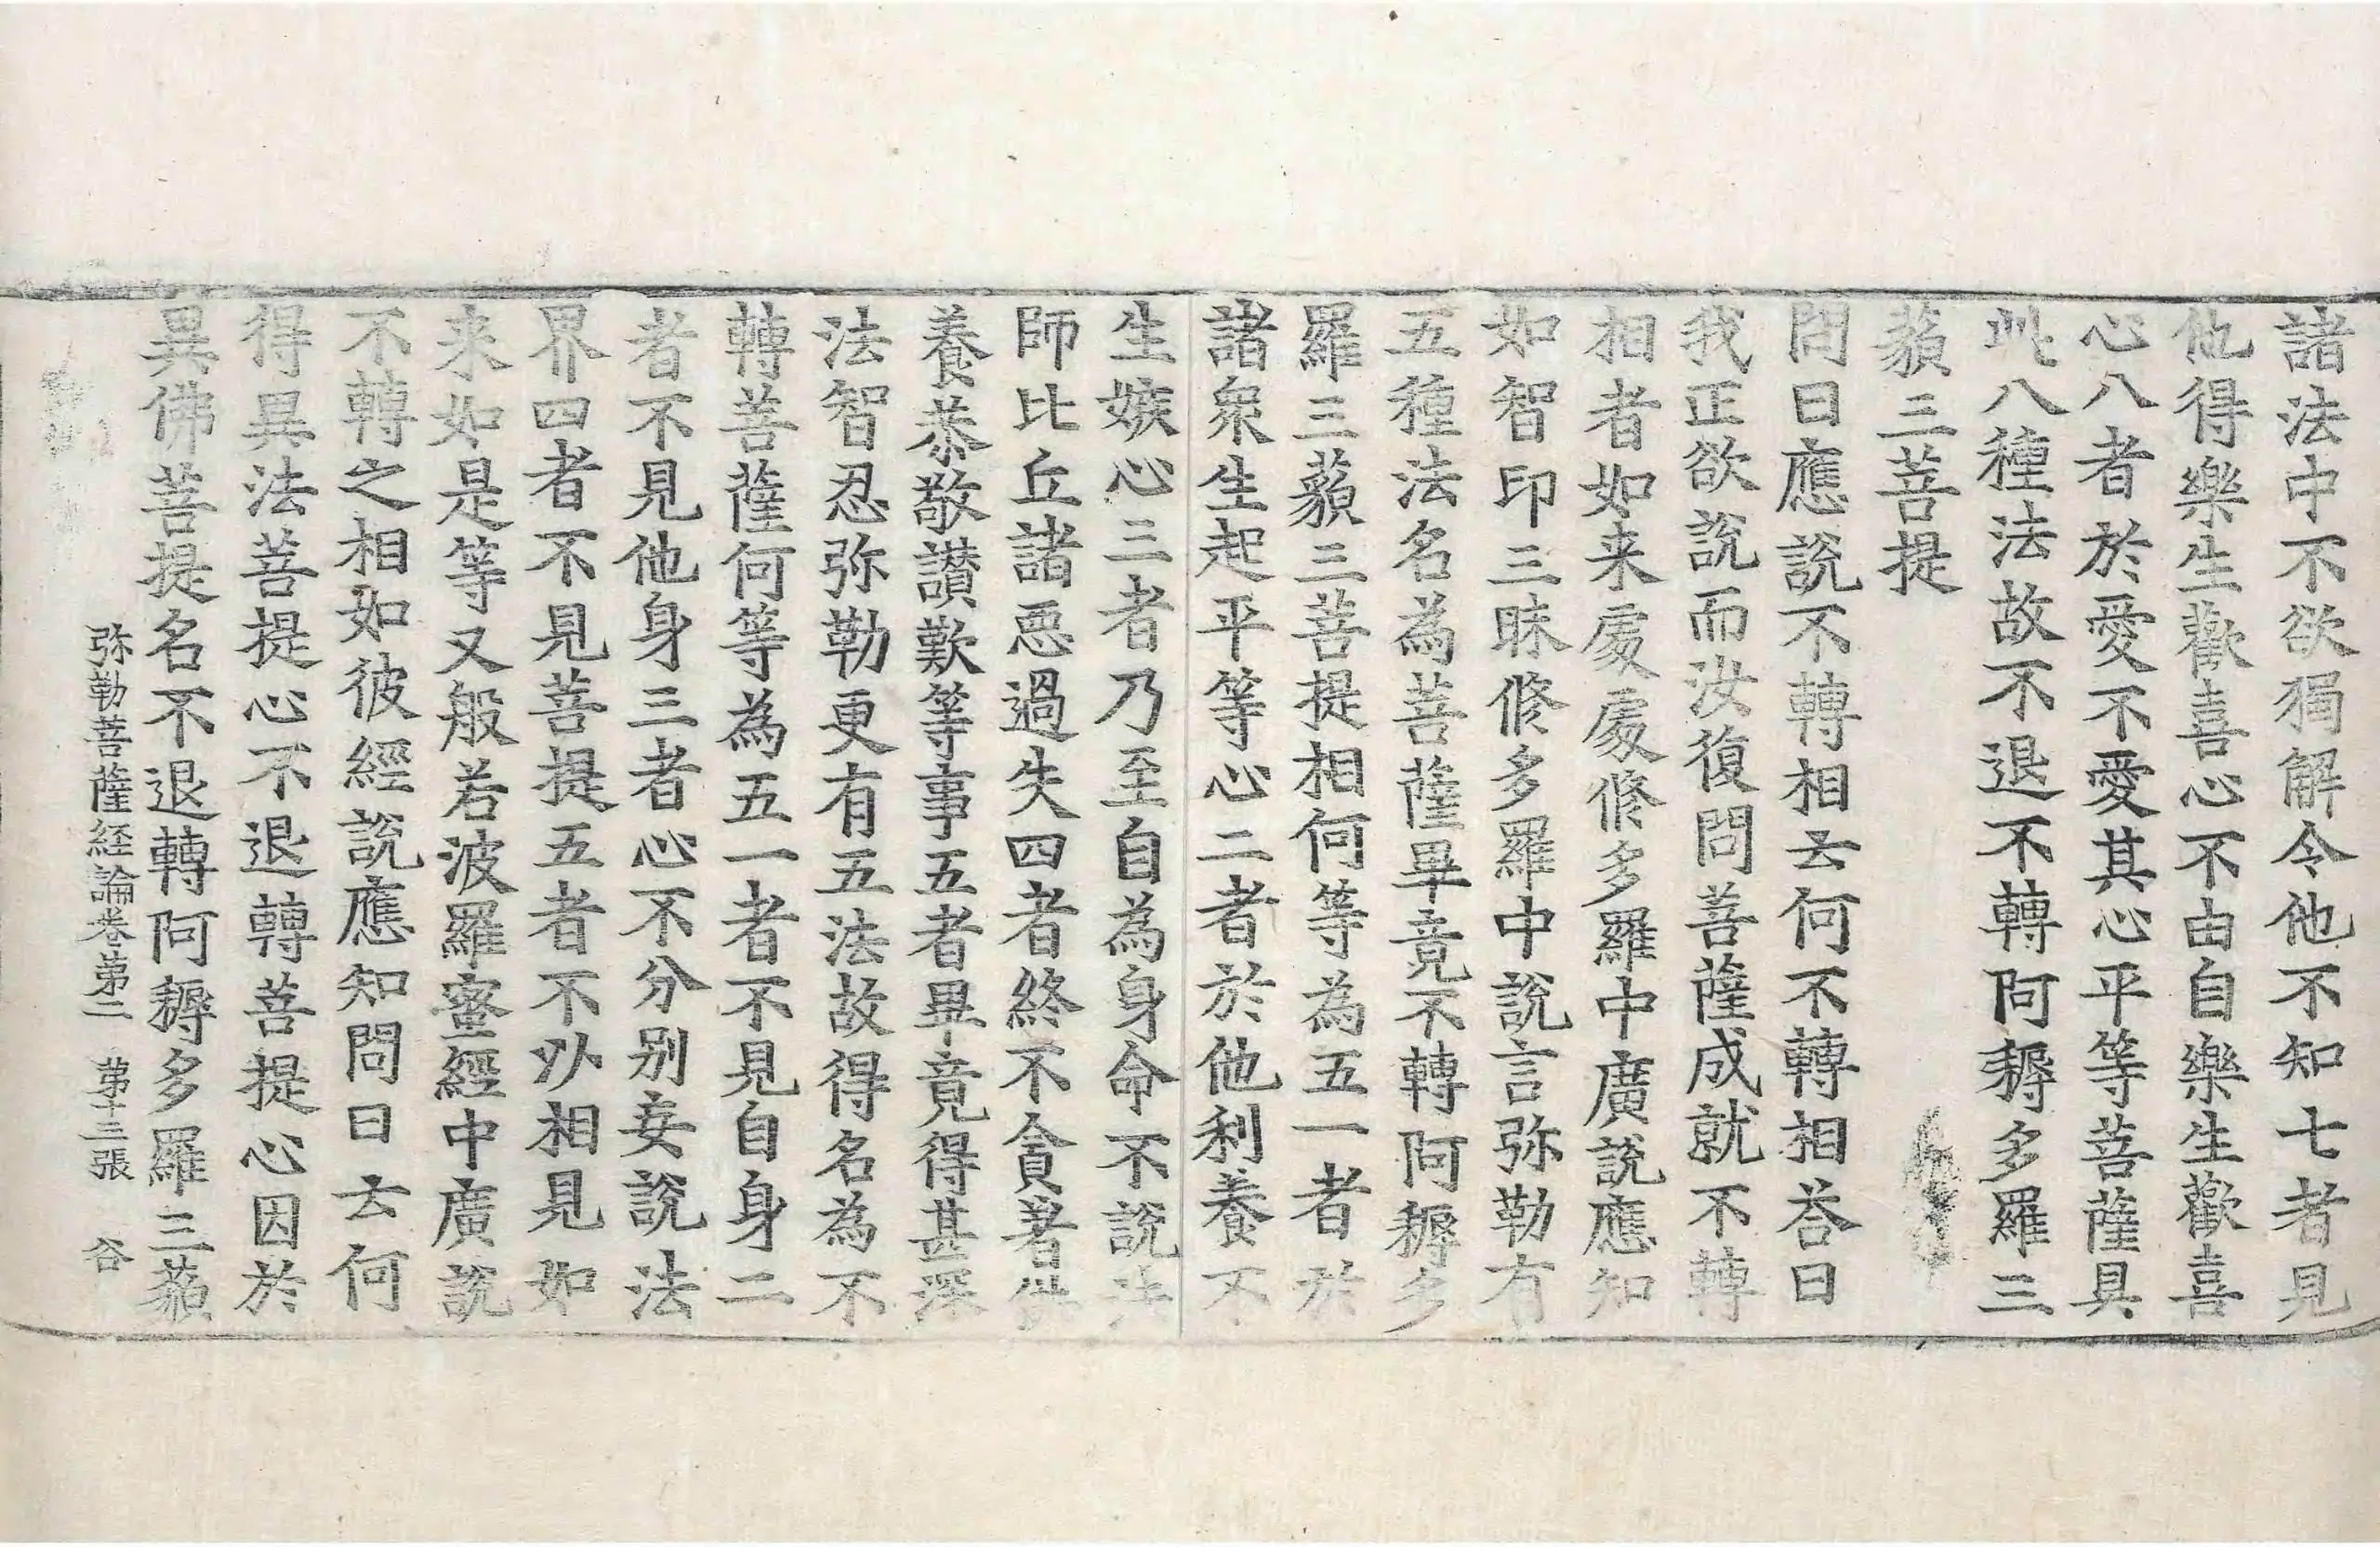 諸法中不欲獨解令他不知七者見
他得樂生歡喜心不由自樂生歡喜
心八者於愛不愛其心平等菩薩具
此八種法故不退不轉阿耨多羅三
藐三菩提
問曰應說不轉相云何不轉相荅曰
我正欲說而汝復問菩薩成就不轉
相者如来處處修多羅中廣說應知
如智印三昧修多羅中說言弥勒有
五種法名為菩薩畢竟不轉阿耨多
羅三藐三菩提相何等為五一者於
諸衆生起平等心二者於他利養不
生嫉心三者乃至自為身命不說法
師比丘諸惡過失四者終不貪著供
養恭敬讃歎等事五者畢竟得甚深
法智忍弥勒更有五法故得名為不
轉菩薩何等為五一者不見自身二
者不見他身三者心不分别妄說法
界四者不見菩提五者不以相見如
来如是等又般若波羅蜜經中廣說
不轉之相如彼經說應知問曰云何
得異法菩提心不退轉菩提心因於
異佛菩提名不退轉阿耨多羅三藐
弥勒菩薩経論卷第二 苐十三張 谷